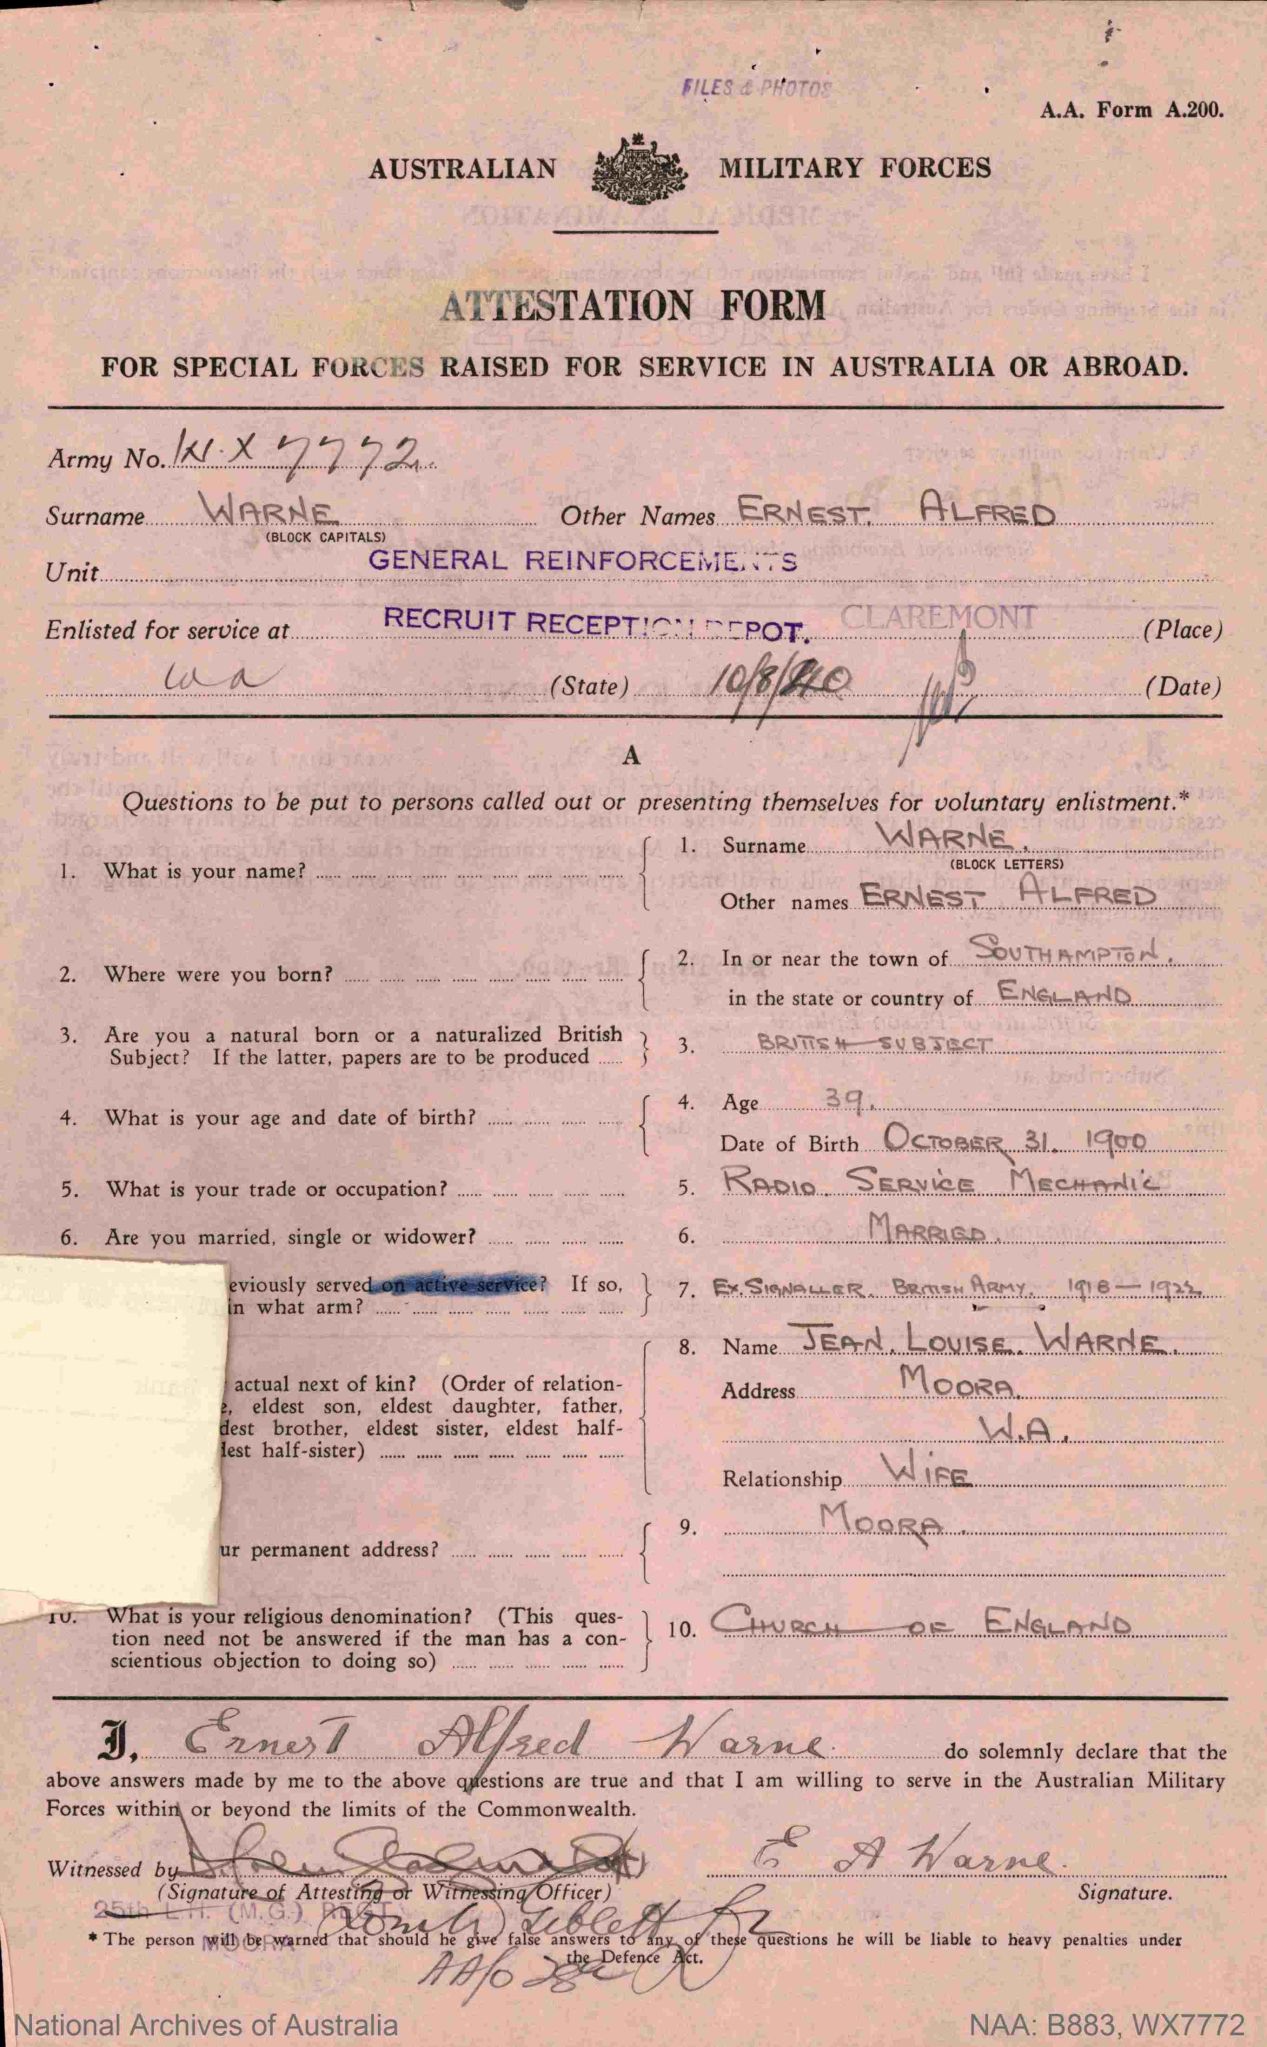 FILES & PHOTOS
A.A. Form A.200.
AUSTRALIAN MILITARY FORCES
ATTESTATION FORM
FOR SPECIAL FORCES RAISED FOR SERVICE IN AUSTRALIA OR ABROAD.
Army No. W.X 7772
Surname WARNE Other Names ERNEST. ALFRED
(BLOCK CAPITALS)
Unit GENERAL REINFORCEMENTS
Enlisted for service at RECRUIT RECEPTION DEPOT. CLAREMONT (Place)
wa (State) 10/8/40 (Date)
A
Questions to be put to persons called out or presenting themselves for voluntary enlistment.*
1. What is your name? 1. Surname WARNE.
(BLOCK LETTERS)
Other names ERNEST ALFRED
2. Where were you born? 2. In or near the town of SOUTHAMPTON.
in the state or country of ENGLAND
3. Are you a natural born or a naturalized British
Subject? If the latter, papers are to be produced 3. BRITISH SUBJECT
4. What is your age and date of birth? 4. Age 39.
Date of Birth OCTOBER 31. 1900
5. What is your trade or occupation? 5. RADIO SERVICE MECHANIC
6. Are you married, single or widower? 6. MARRIED.
eviously served on active service? If so, 7. EX. SIGNALLER. BRITISH ARMY. 1918 — 1922
in what arm?
8. Name JEAN. LOUISE. WARNE.
actual next of kin? (Order of relation- Address MOORA.
e, eldest son, eldest daughter, father,
dest brother, eldest sister, eldest half- W.A.
lest half-sister)
Relationship WIFE
9. MOORA.
ur permanent address?
10. What is your religious denomination? (This ques-
tion need not be answered if the man has a con- 10. CHURCH OF ENGLAND
scientious objection to doing so)
I, Ernest Alfred Warne do solemnly declare that the
above answers made by me to the above questions are true and that I am willing to serve in the Australian Military
Forces within or beyond the limits of the Commonwealth.
Witnessed by E A Warne.
(Signature of Attesting or Witnessing Officer) Signature.
25th L.H. (M.G.) REGT.
* The person will be warned that should he give false answers to any of these questions he will be liable to heavy penalties under
MOORA
the Defence Act.
National Archives of Australia NAA: B883, WX7772